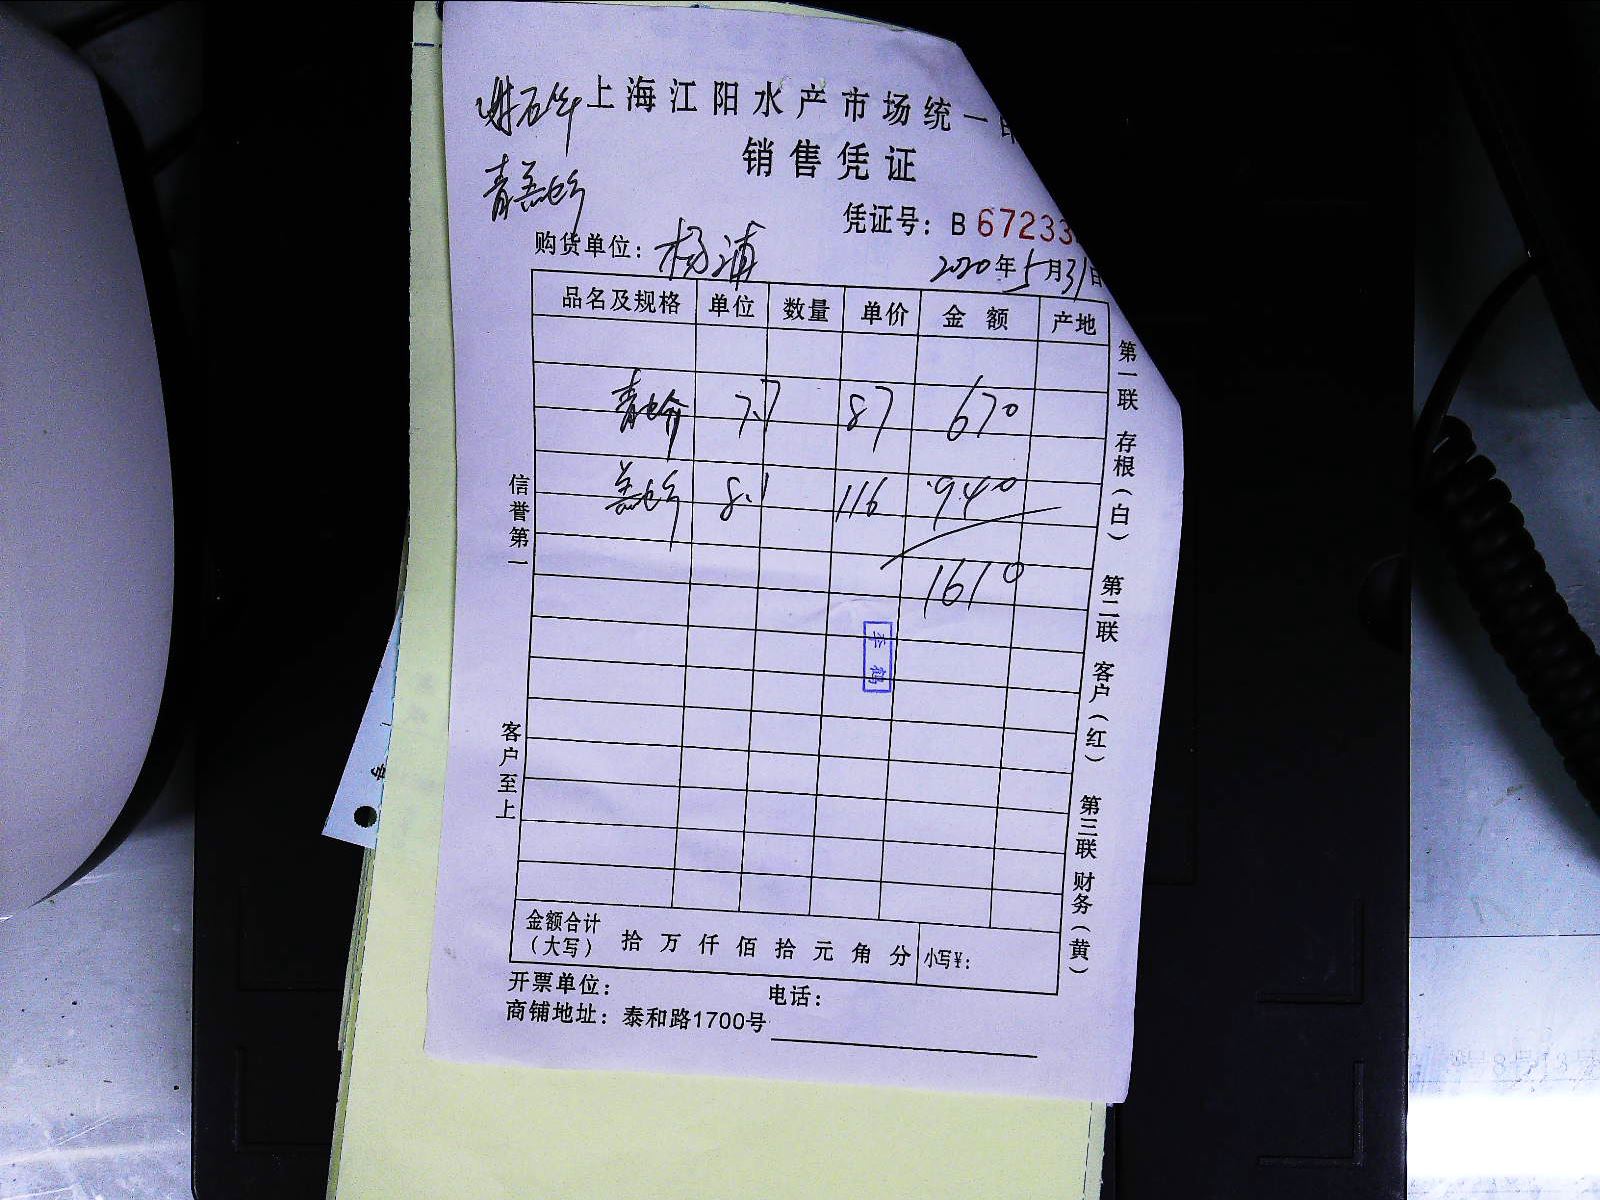 上海江阳水产市场统一印
销售凭证
凭证号：B 67233
购货单位：杨浦
2020年5月31日
品名及规格 单位 数量 单价 金额 产地
7.7 87 670
8.1 116 940
1610
信誉第一
客户至上
第一联 存根（白） 第二联 客户（红） 第三联 财务（黄）
金额合计（大写） 拾 万 仟 佰 拾 元 角 分 小写¥：
开票单位： 电话：
商铺地址：泰和路1700号